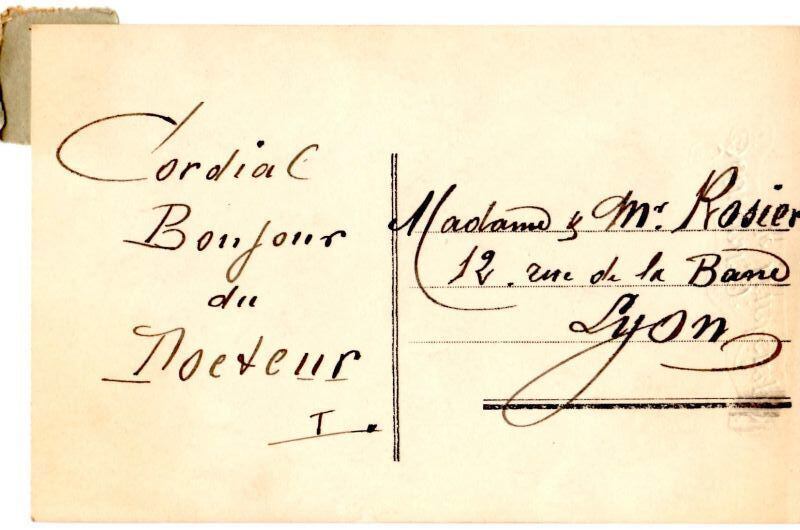 Cordial
Bonjour
du
Docteur
T.
Madame & Mr. Rosier
12. rue de la Barre
Lyon